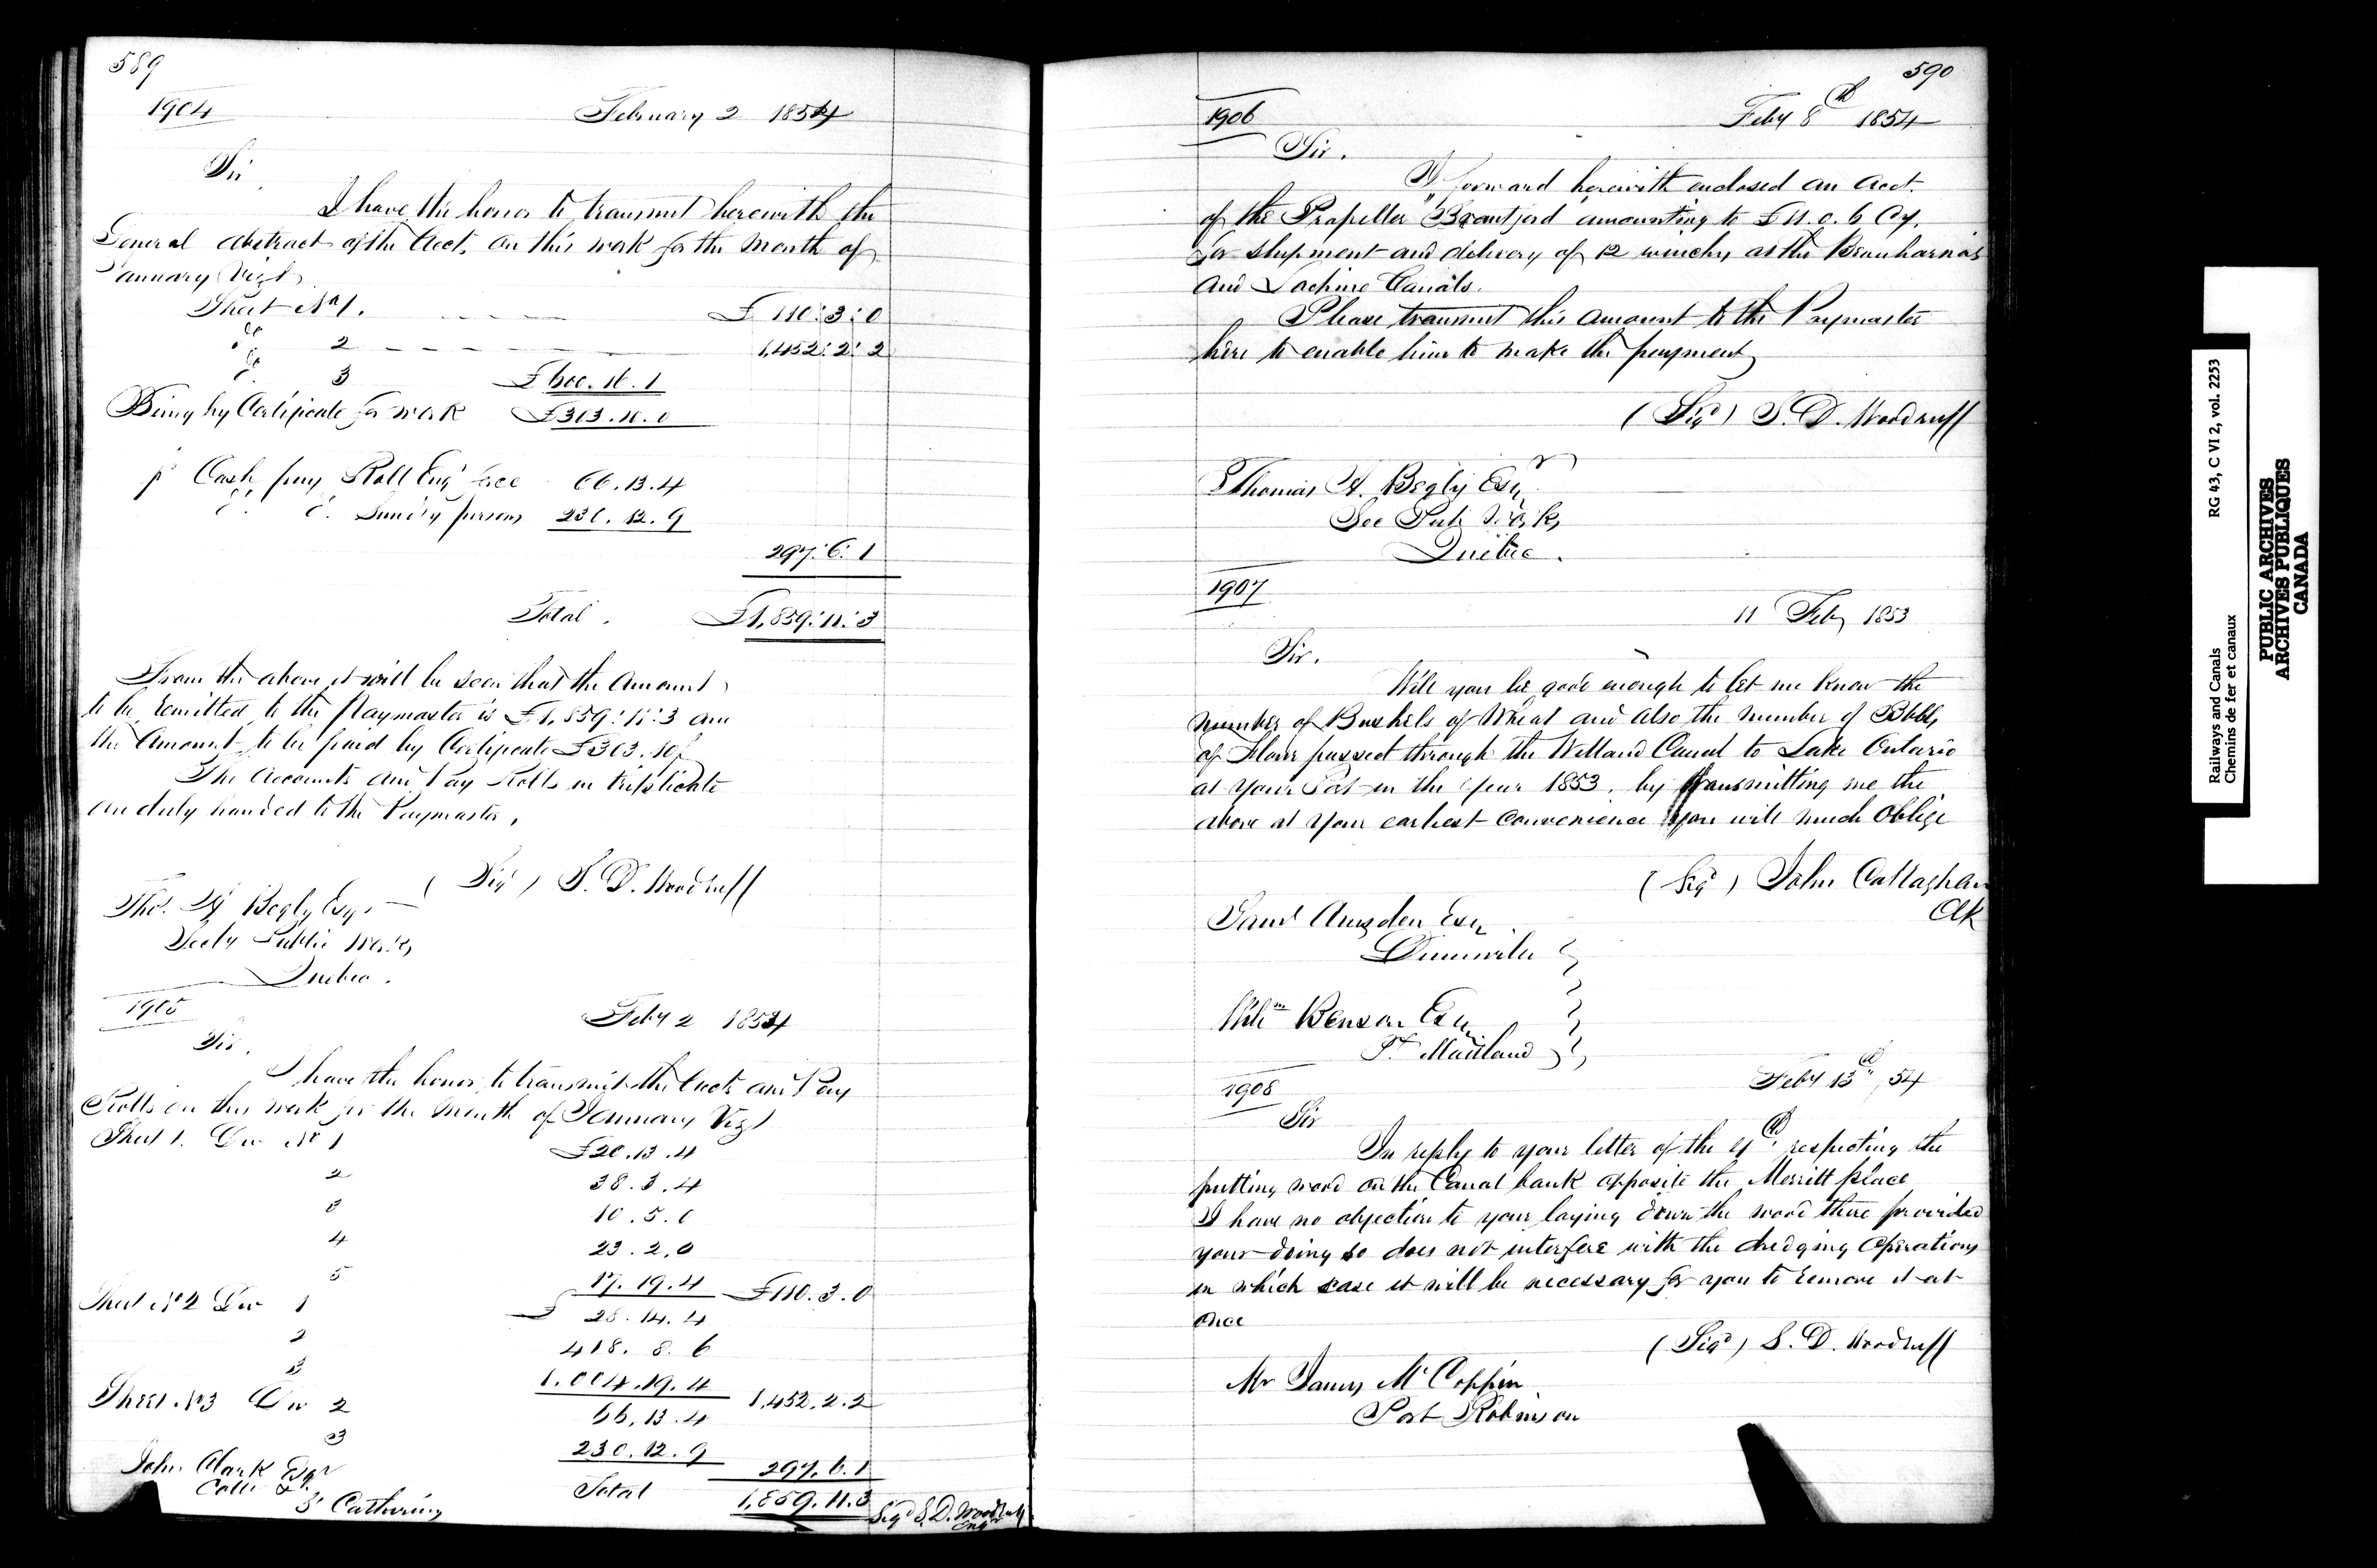 589
1904 February 2 1854
Sir
I have the honor to transmit herewith the
General abstract of the Acct. on this work for the month of
January Vizt
Sheet No 1. £ 110:3:0
do 2 1,452:2:2
do 3 £600.16.1
Being by Certificate for work £303.10.0
pr Cash pay Roll Eng 66.13.4
do do Sundry persons 230.12.9
297:6:1
Total. £1,859:11:3
From the above it will be seen that the Amount
to be remitted to the Paymaster is £1,859:11:3 and
the Amount to be paid by Certificate £303.10/
The Accounts and Pay Rolls in triplicate
are duly handed to the Paymaster,
(Sigd) S. D. Woodruff
Thos. A Begly Esqr
Secty Public Works
Quebec.
1905 Feby 2 1854
Sir.
I have the honor to transmit the Accts and Pay
Rolls on this work for the month of January Vizt
Sheet 1. Div No 1 £20.13.4
2 38.3.4
3 10.5.0
4 23.2.0
5 17.19.4 £110.3.0
Sheet No 2 Div 1 28.14.4
2 418.8.6
3 1.004.19.4 1,452.2.2
Sheet No 3 Div 2 66.13.4
3 230.12.9 297.6.1
Total 1,859.11.3
John Clark Esqr
St Catharines
Sigd S. D. Woodruff
Engr
590
1906 Feby 8th 1854
Sir.
I forward herewith enclosed an Acct.
of the Propeller "Brantford" amounting to £11.0.6 Cy.
for shipment and delivery of 12 winches at the Beauharnois
and Lachine Canals.
Please transmit this amount to the Paymaster
here to enable him to make the payment
(Sigd) S. D. Woodruff
Thomas A. Begly Esqr
Sec Pub Works
Quebec.
1907
11 Feby 1853
Sir.
Will you be good enough to let me know the
number of Bushels of Wheat and also the number of Bbbls,
of Flour passed through the Welland Canal to Lake Ontario
at your Port in the year 1853. by transmitting me the
above at your earliest convenience you will much Oblige
(Sigd) John Callaghan
Clk
Saml Amsden Esqr
Dunnville
Willm Benson Esqr
Pt Maitland
1908 Feby 13th /54
Sir
In reply to your letter of the 4th. respecting the
putting wood on the Canal bank opposite the Merritt place
I have no objection to your laying down the wood there provided
your doing so does not interfere with the dredging Operations
in which case it will be necessary for you to remove it at
once
(Sigd) S. D. Woodruff
Mr James McCoppin
Port Robinson
Railways and Canals RG 43, C VI 2, vol. 2253
Chemins de fer et canaux
PUBLIC ARCHIVES
ARCHIVES PUBLIQUES
CANADA